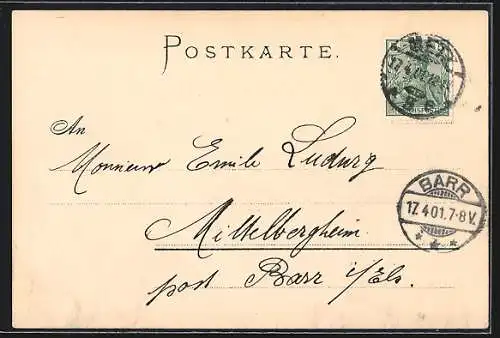 POSTKARTE.
METZ
17.4.01
An
Monsieur Emile Ludwig
Mittelbergheim
post Barr i/Els.
BARR
17.4.01.7-8V.
* * *